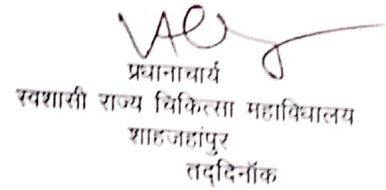 प्रधानाचार्य
स्वशासी राज्य चिकित्सा महाविद्यालय
शाहजहांपुर
तद्दिनॉक